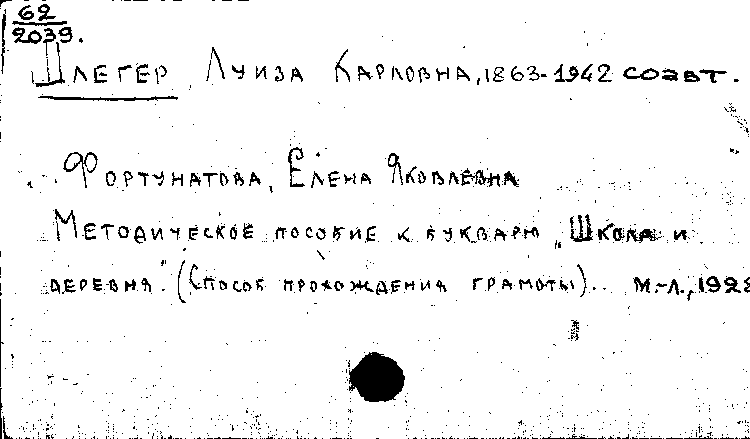 62
2039.
Шлегер Луиза Карловна, 1863-1942 соавт.
Фортунатова, Елена Яковлевна
Методическое пособие к букварю „Школа и
деревня". (Способ прохождения грамоты).. М.-Л., 1928